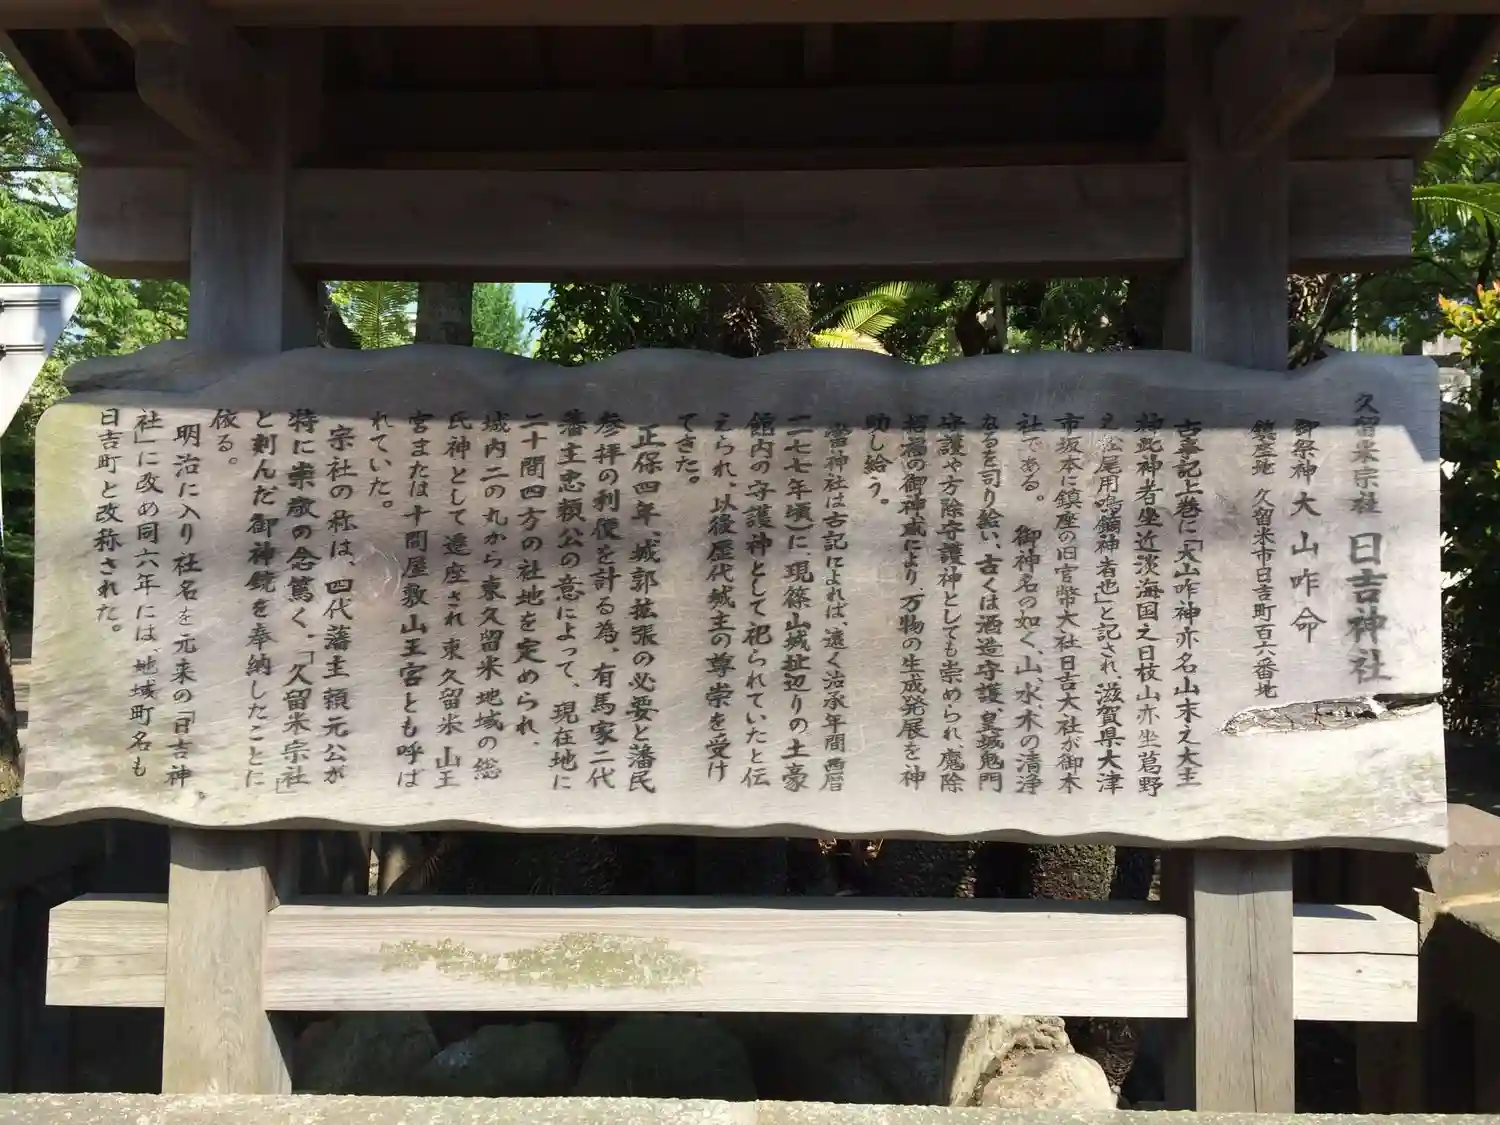 久留米宗社 日吉神社
御祭神 大山咋命
鎮座地 久留米市日吉町百六番地
古事記上巻に「大山咋神亦名山末之大主
神此神者坐近淡海国之日枝山亦坐葛野
之松尾用鳴鏑神者也」と記され、滋賀県大津
市坂本に鎮座の旧官幣大社日吉大社が御本
社である。 御神名の如く、山、水、木の清浄
なるを司り給い、古くは酒造守護、皇城鬼門
守護や方除守護神としても崇められ、魔除
招福の御神威により、万物の生成発展を神
助し給う。
当神社は古記によれば、遠く治承年間(西暦
一一七七年頃)に現篠山城趾辺りの土豪
館内の守護神として祀られていたと伝
えられ、以後歴代城主の尊崇を受け
てきた。
正保四年、城郭拡張の必要と藩民
参拝の利便を計る為、有馬家二代
藩主忠頼公の意によって、現在地に
二十間四方の社地を定められ、
城内二の丸から東久留米地域の総
氏神として遷座され東久留米山王
宮または十間屋敷山王宮とも呼ば
れていた。
宗社の称は、四代藩主頼元公が
特に崇敬の念篤く、「久留米宗社」
と刻んだ御神鏡を奉納したことに
依る。
明治に入り社名を元来の「日吉神
社」に改め同六年には、地域町名も
日吉町と改称された。